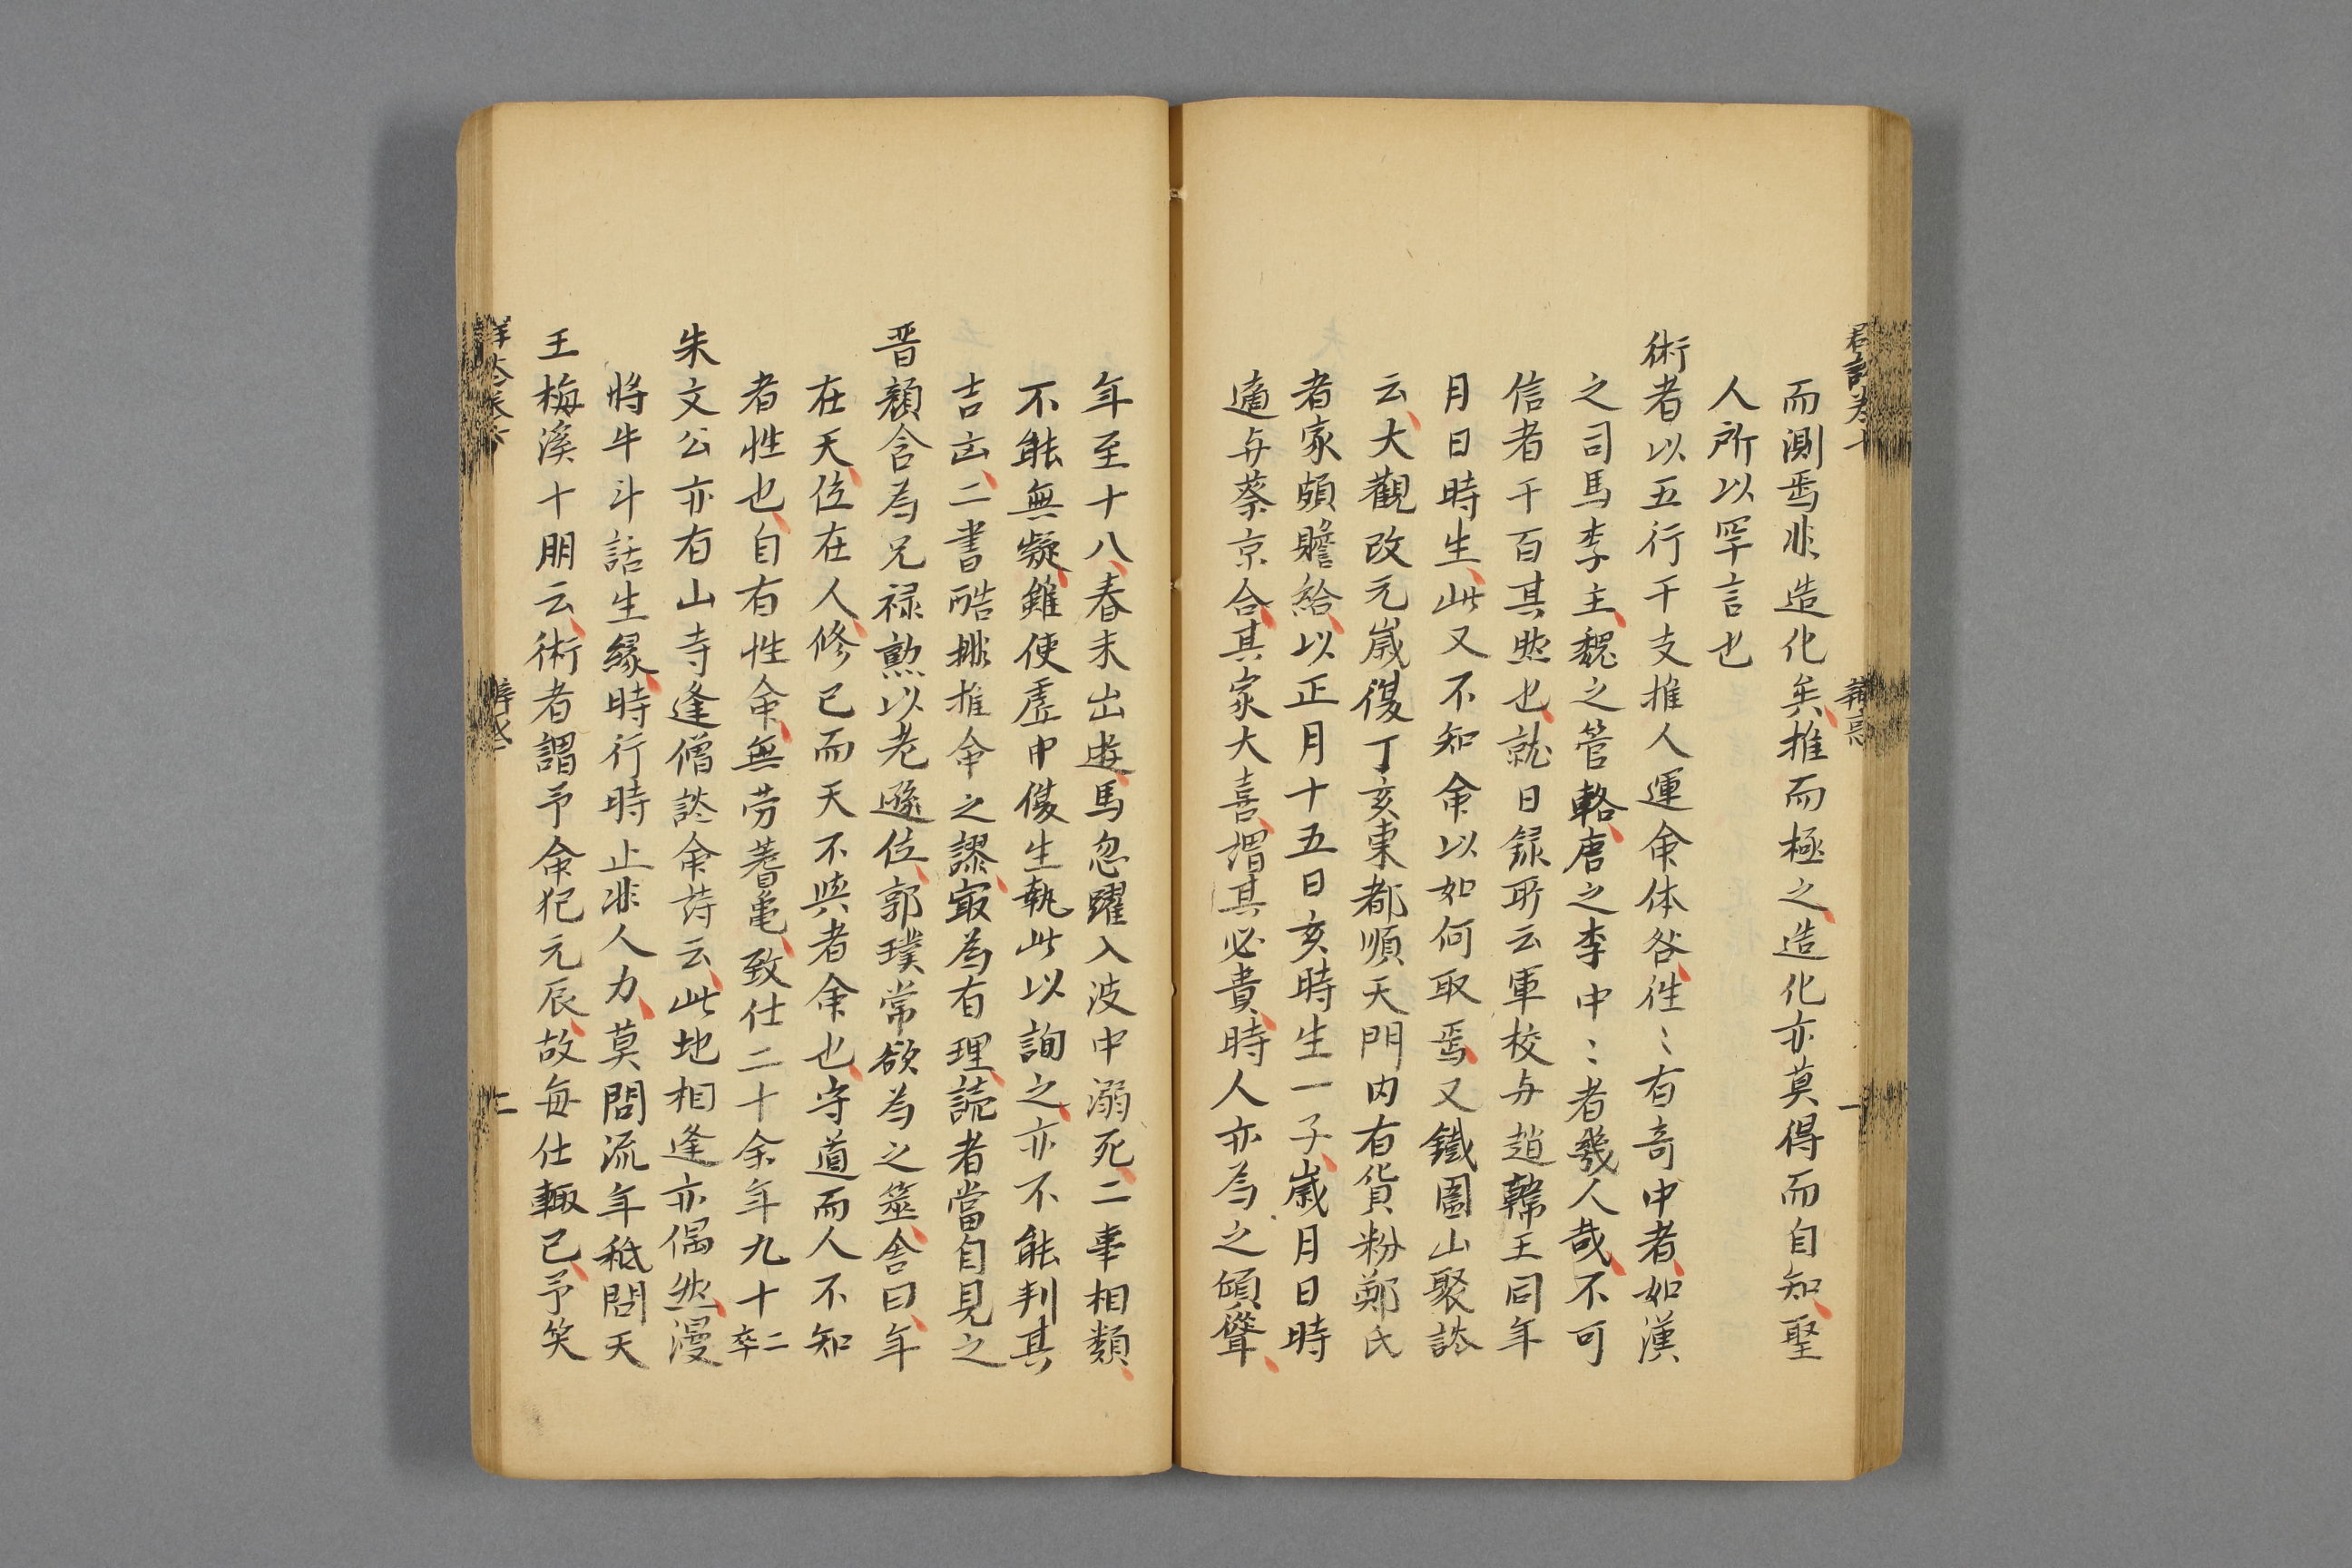 而測焉非造化矣推而極之造化亦莫得而自知聖
人所以罕言也
術者以五行干支推人運命体咎徃〻有奇中者如漢
之司馬李主魏之管輅唐之李中〻者幾人哉不可
信者千百其然也就日録所云軍校与趙韓王同年
月日時生此又不知命以如何取焉又鐵圍山聚談
云大觀改元歳復丁亥東都順天門内有貨粉鄭氏
者家頗贍給以正月十五日亥時生一子歳月日時
適与蔡京合其家大喜謂其必貴時人亦為之傾聳
年至十八春末出遊馬忽躍入波中溺死二事相類
不能無凝雖使虚中復生執此以詢之亦不能判其
吉凶二書酷排推命之謬寂為有理読者當自見之
晋顔含為兄禄勲以老遜位郭璞常欲為之筮含曰年
在天位在人修己而天不與者命也守道而人不知
者性也自有性命無労蓍亀致仕二十余年九十二卒
朱文公亦有山寺逢僧談命詩云此地相逢亦偶然漫
將牛斗話生縁時行時止非人力莫問流年秪問天
王梅溪十朋云術者謂予命犯元辰故毎仕輙已予笑